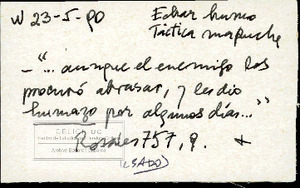 W 23-5-90
Echar humo
Táctica mapuche
– "... aunque el enemigo los
procuró abrasar, y les dio
humazo por algunos días..."
Rosales 757, 9.
CELICH UC
(SADO)